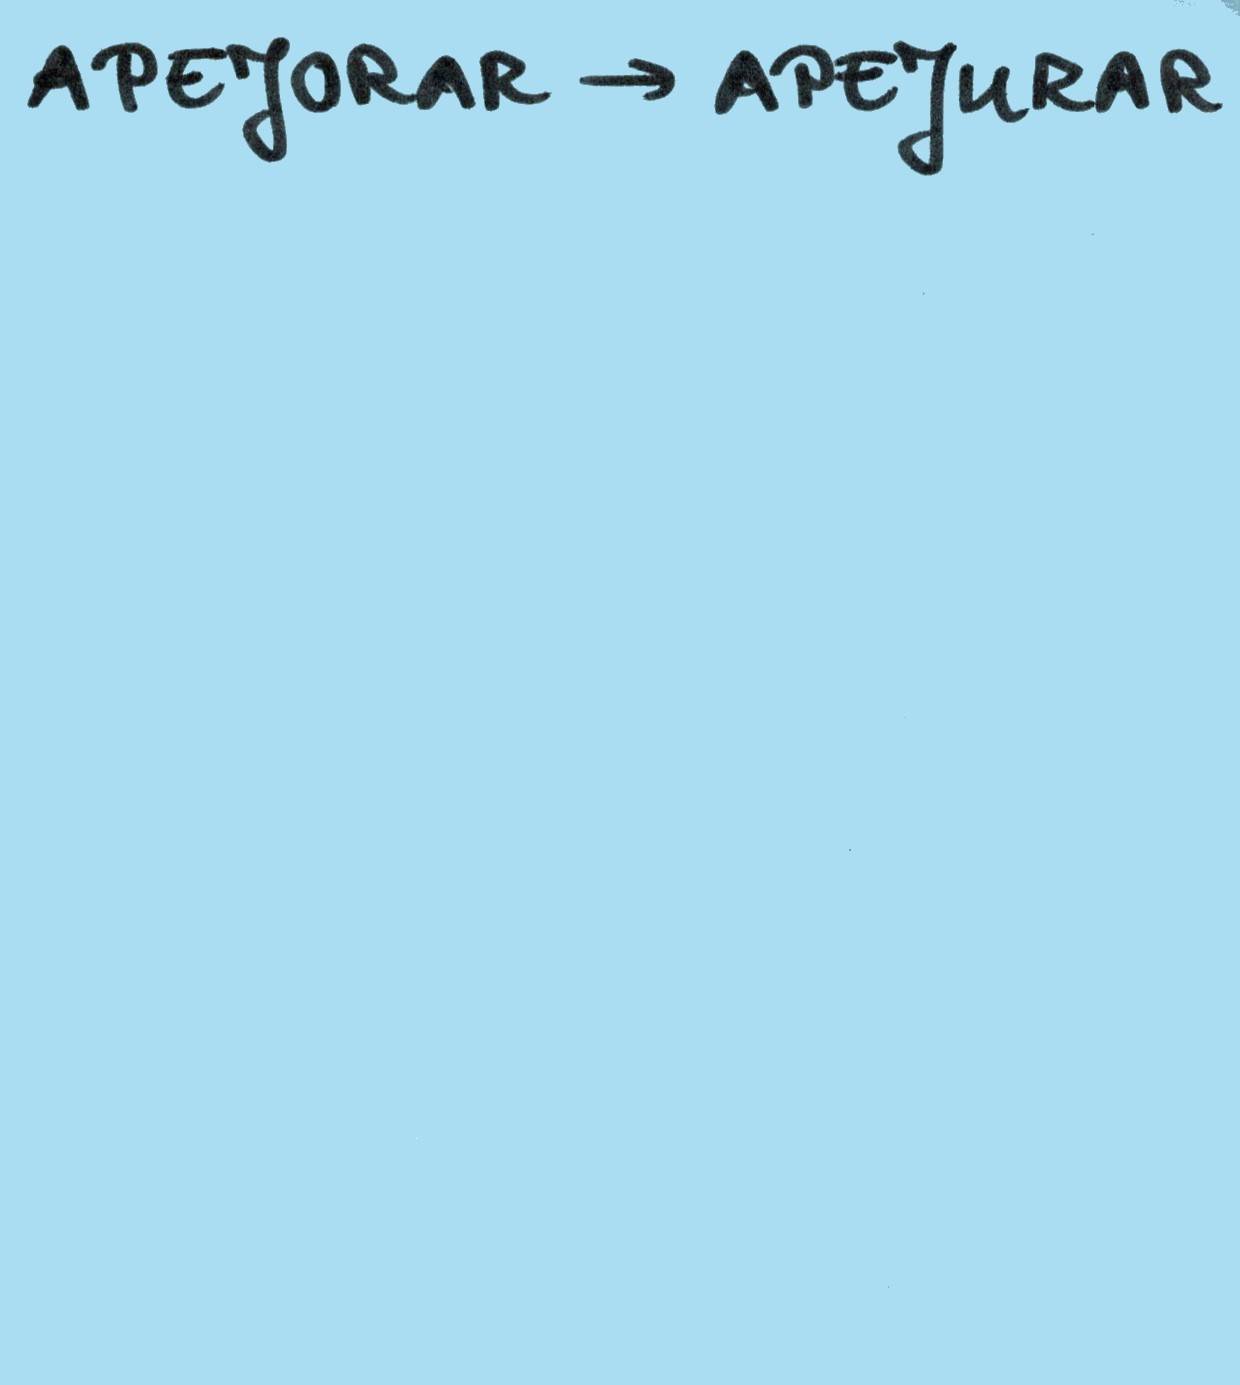 APEJORAR → APEJURAR